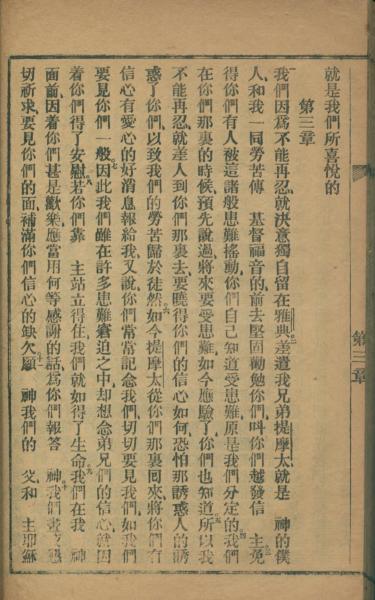 就是我們所喜悅的
第三章
我們因爲不能再忍就決意獨自留在雅典差遣我兄弟提摩太就是　神的僕
人和我一同勞苦傳　基督福音的前去堅固勸勉你們呌你們越發信　主免
得你們有人被這諸般患難搖動你們自己知道受患難原是我們分定的我們
在你們那裏的時候預先說過將來要受患難如今應驗了你們也知道所以我
不能再忍就差人到你們那裏去要曉得你們的信心如何恐怕那誘惑人的誘
惑了你們以致我們的勞苦歸於徒然如今提摩太從你們那裏囘來將你們有
信心有愛心的好消息報給我又說你們常常記念我們切切要見我們如我們
要見你們一般因此我們雖在許多患難窘迫之中却想念弟兄們的信心就因
着你們得了安慰若你們靠　主站立得住我們就如得了生命我們在我　神
面前因着你們甚是歡樂應當用何等感謝的話爲你們報答　神我們晝夜懇
切祈求要見你們的面補滿你們信心的缺欠願　神我們的　父和　主耶穌
第三章